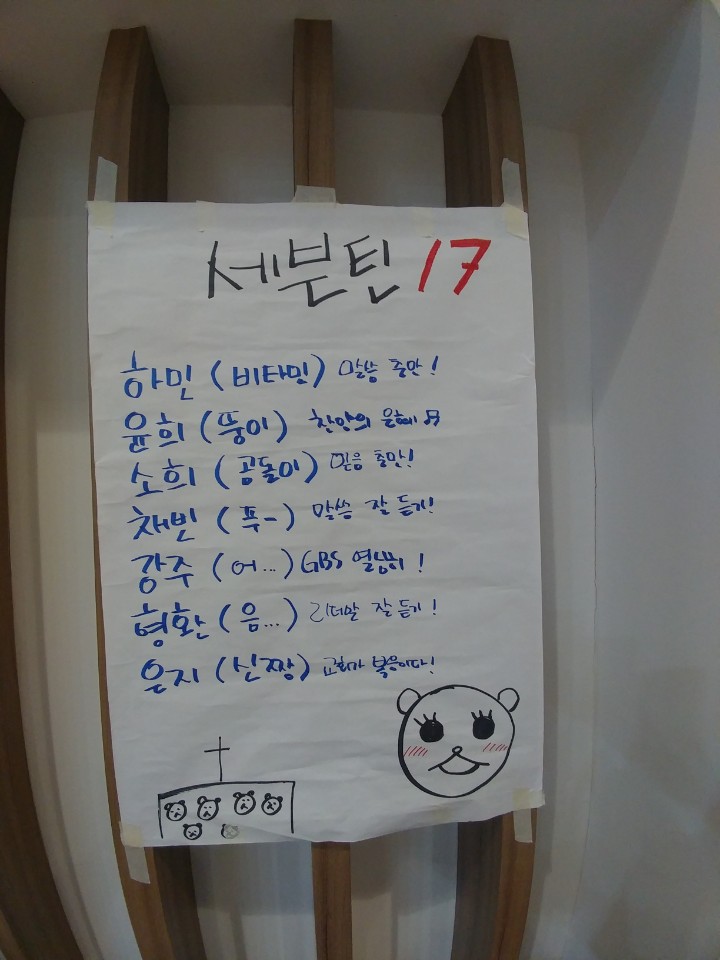 세븐틴 17
하민 (비타민) 말씀 충만!
윤희 (뚱이) 찬양의 은혜 ♫
소희 (공돌이) 믿음 충만!
채빈 (푸-) 말씀 잘 듣기!
광주 (어...) GBS 열심히!
형환 (음...) 리더말 잘 듣기!
은지 (신짱) 교회가 복음이다!